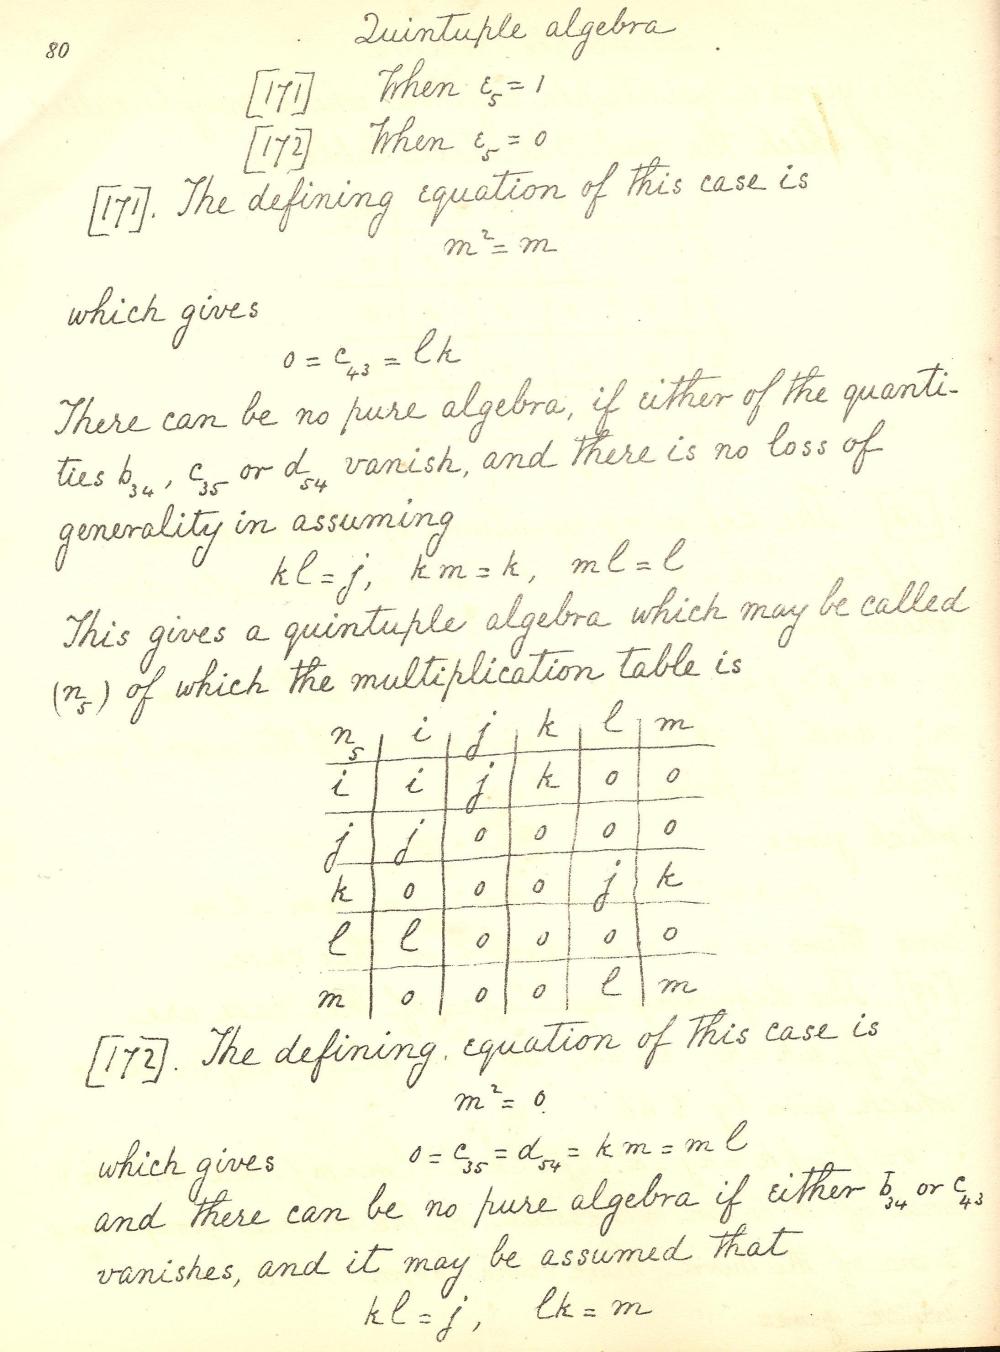 80
Quintuple algebra
[171] When ε₅ = 1
[172] When ε₅ = 0
[171]. The defining equation of this case is
m² = m
which gives
0 = c₄₃ = lk
There can be no pure algebra, if either of the quanti-
ties b₃₄, c₃₅ or d₅₄ vanish, and there is no loss of
generality in assuming
kl = j, km = k, ml = l
This gives a quintuple algebra which may be called
(n₅) of which the multiplication table is
n₅ | i | j | k | l | m
i | i | j | k | 0 | 0
j | j | 0 | 0 | 0 | 0
k | 0 | 0 | 0 | j | k
l | l | 0 | 0 | 0 | 0
m | 0 | 0 | 0 | l | m
[172]. The defining equation of this case is
m² = 0
which gives 0 = c₃₅ = d₅₄ = km = ml
and there can be no pure algebra if either b₃₄ or c₄₃
vanishes, and it may be assumed that
kl = j, lk = m